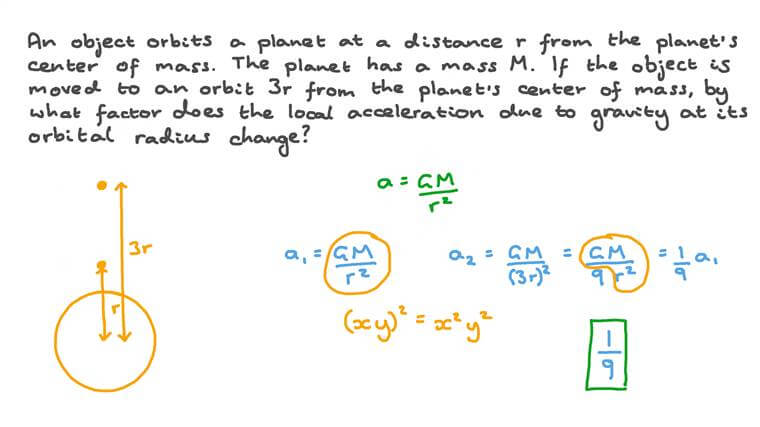 An object orbits a planet at a distance r from the planet's
center of mass. The planet has a mass M. If the object is
moved to an orbit 3r from the planet's center of mass, by
what factor does the local acceleration due to gravity at its
orbital radius change?
a = GM/r²
3r
r
a₁ = GM/r² a₂ = GM/(3r)² = GM/9r² = 1/9 a₁
(xy)² = x²y²
1/9